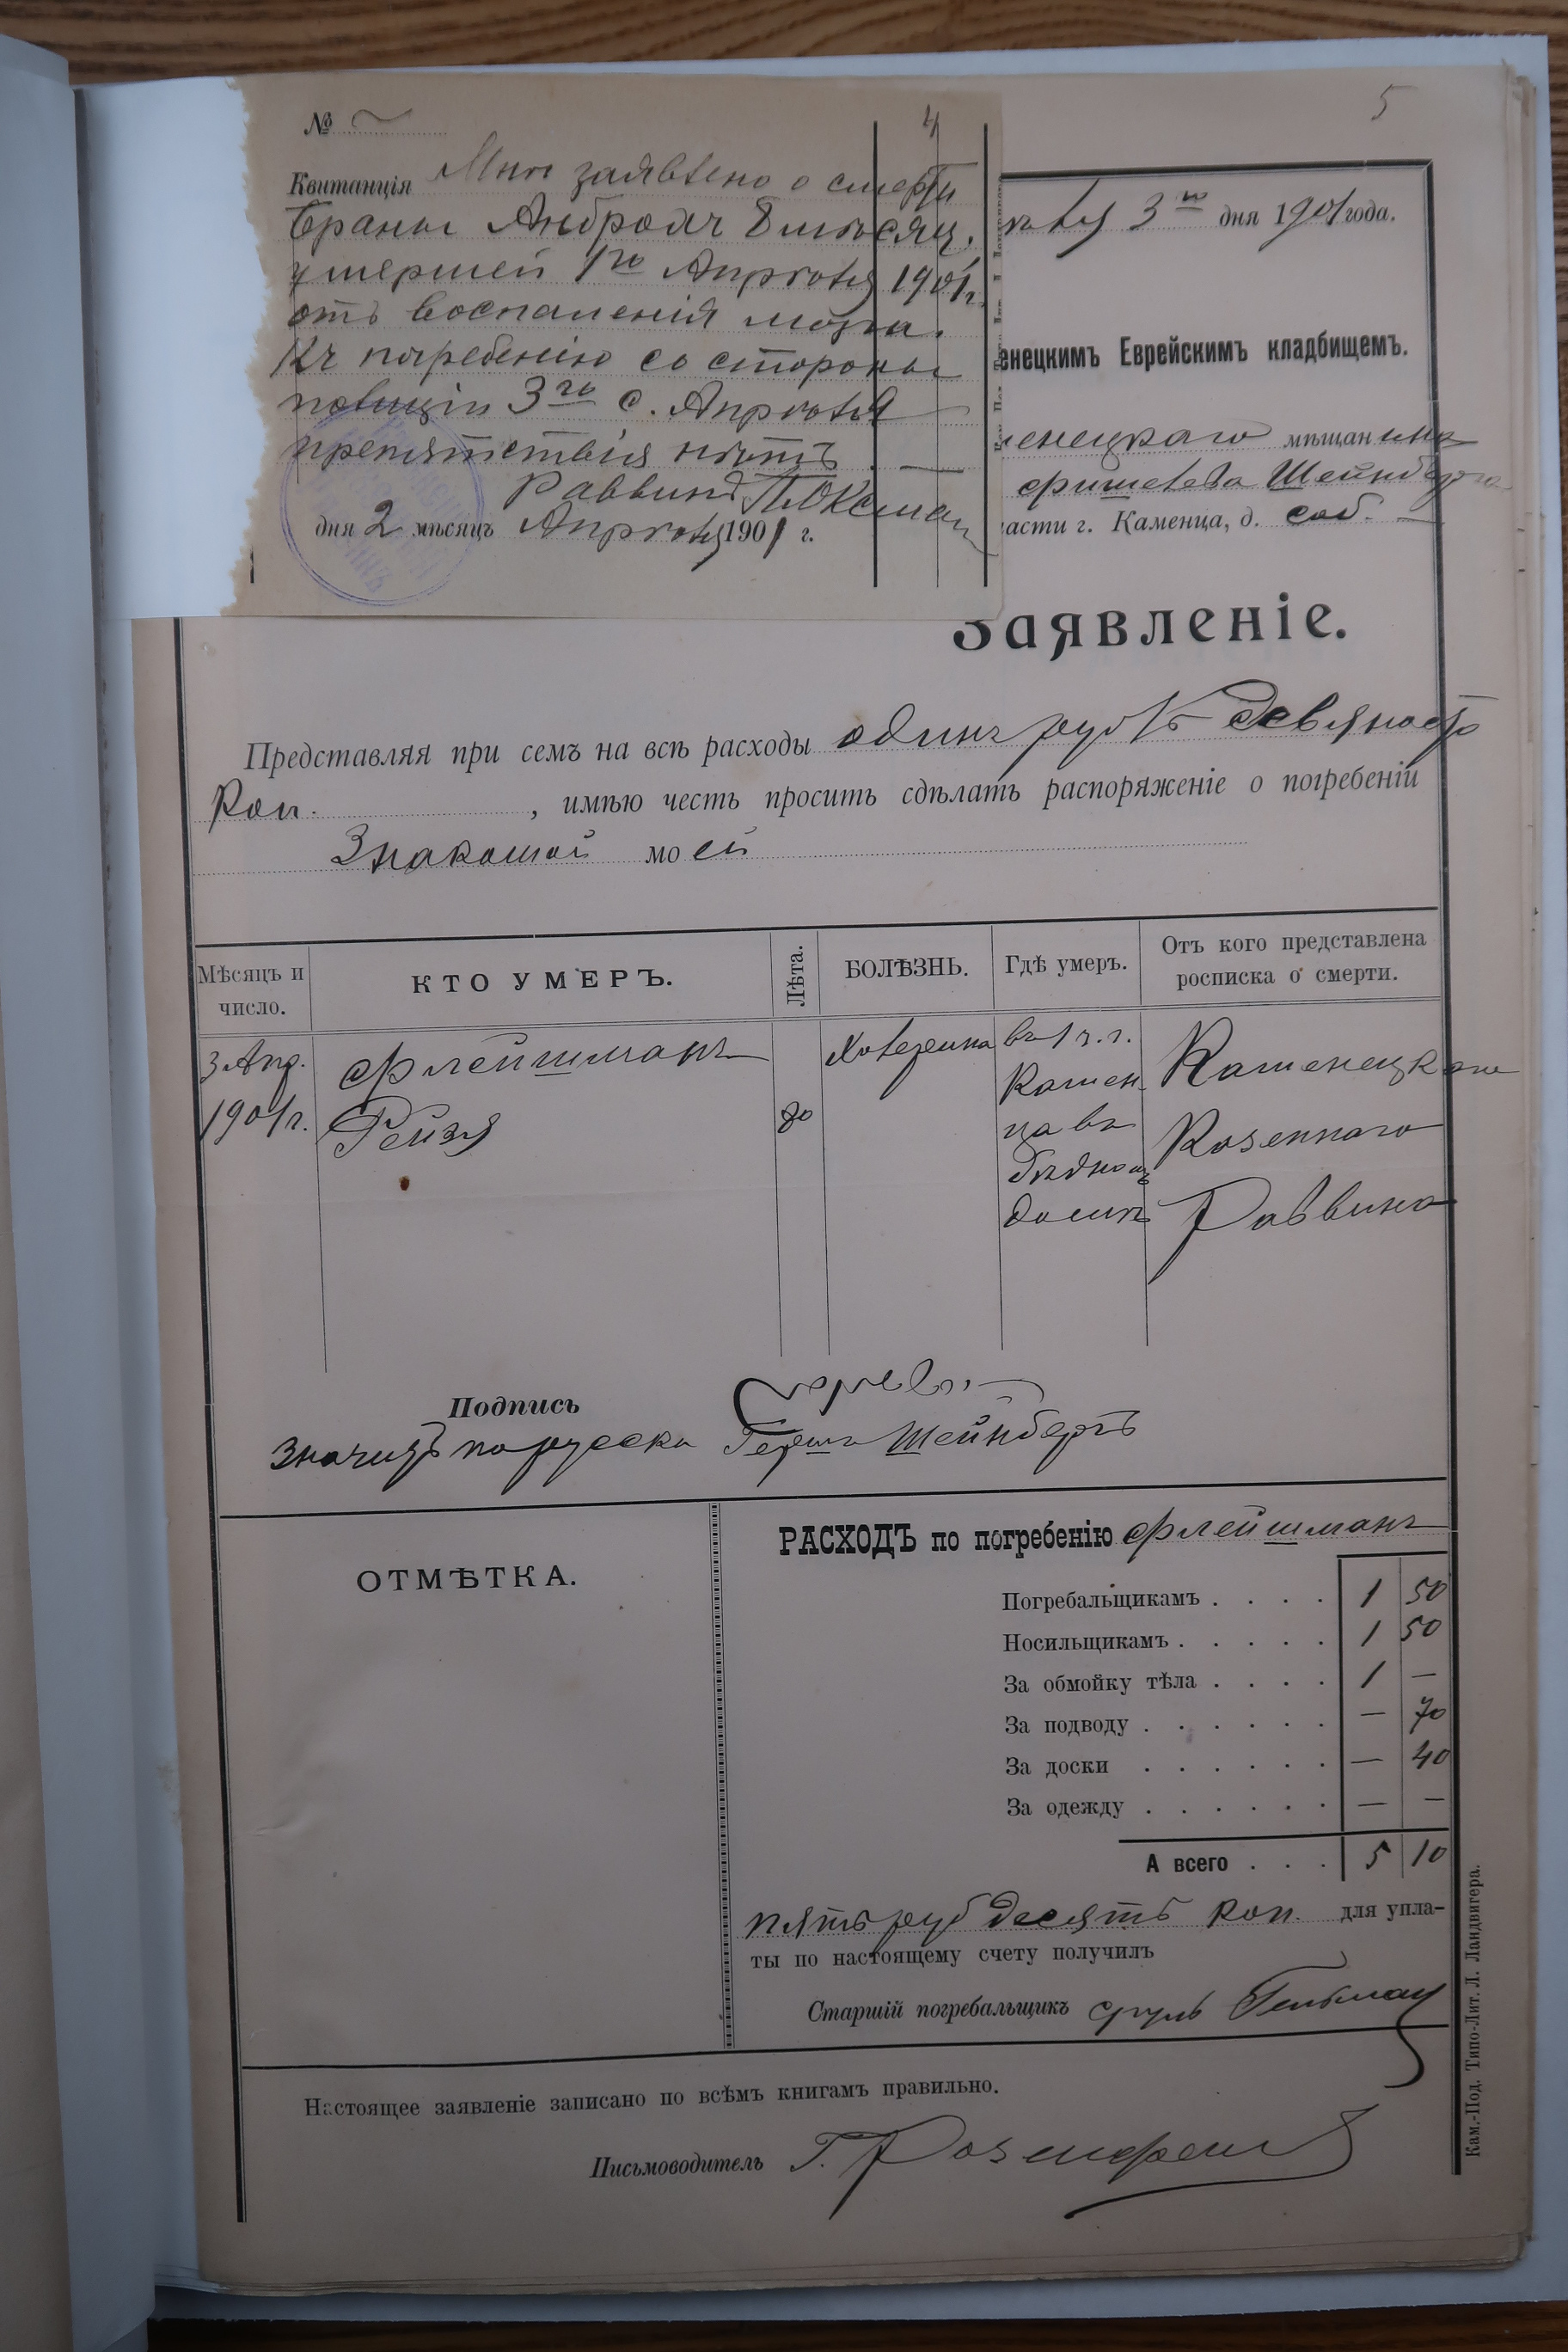 №
4
5
Квитанція Мнѣ заявлено о смерти
Браны 8 мѣсяц.
умершей 1го Апрѣля 1901 г.
отъ воспаленія мозга.
Къ погребенію со стороны
полиціи 3го с. Апрѣля
препятствія нѣтъ.
Раввинъ
дня 2 мѣсяцъ Апрѣля 1901 г.
3го дня 1901 года.
енецкимъ Еврейскимъ кладбищемъ.
енецкаго мѣщанина
Шейнберга
части г. Каменца, д. соб.
Заявленіе.
Представляя при семъ на всѣ расходы одинъ руб девяносто
коп. , имѣю честь просить сдѣлать распоряженіе о погребеніи
Знакомой моей
Мѣсяцъ и число.
КТО УМЕРЪ.
Лѣта.
БОЛѢЗНЬ.
Гдѣ умеръ.
Отъ кого представлена росписка о смерти.
3 Апр.
1901 г.
Флейшманъ
Рейзя
80
Холерина
въ 1 ч. г.
Камен
ца въ
бѣдном
домѣ
Каменецкаго
Казеннаго
Раввина
Подпись
значитъ по русски Герша Шейнбергъ
ОТМѢТКА.
РАСХОДЪ по погребенію Флейшманъ
Погребальщикамъ . . . . 1 50
Носильщикамъ . . . . . 1 50
За обмойку тѣла . . . . 1 —
За подводу . . . . . . — 70
За доски . . . . . . — 40
За одежду . . . . . . — —
А всего . . . 5 10
пять руб десять коп. для упла-
ты по настоящему счету получилъ
Старшій погребальщикъ Сруль Гельман
Настоящее заявленіе записано по всѣмъ книгамъ правильно.
Письмоводитель Г. Розенфельд
Кам.-Под. Типо-Лит. Л. Ландвигера.